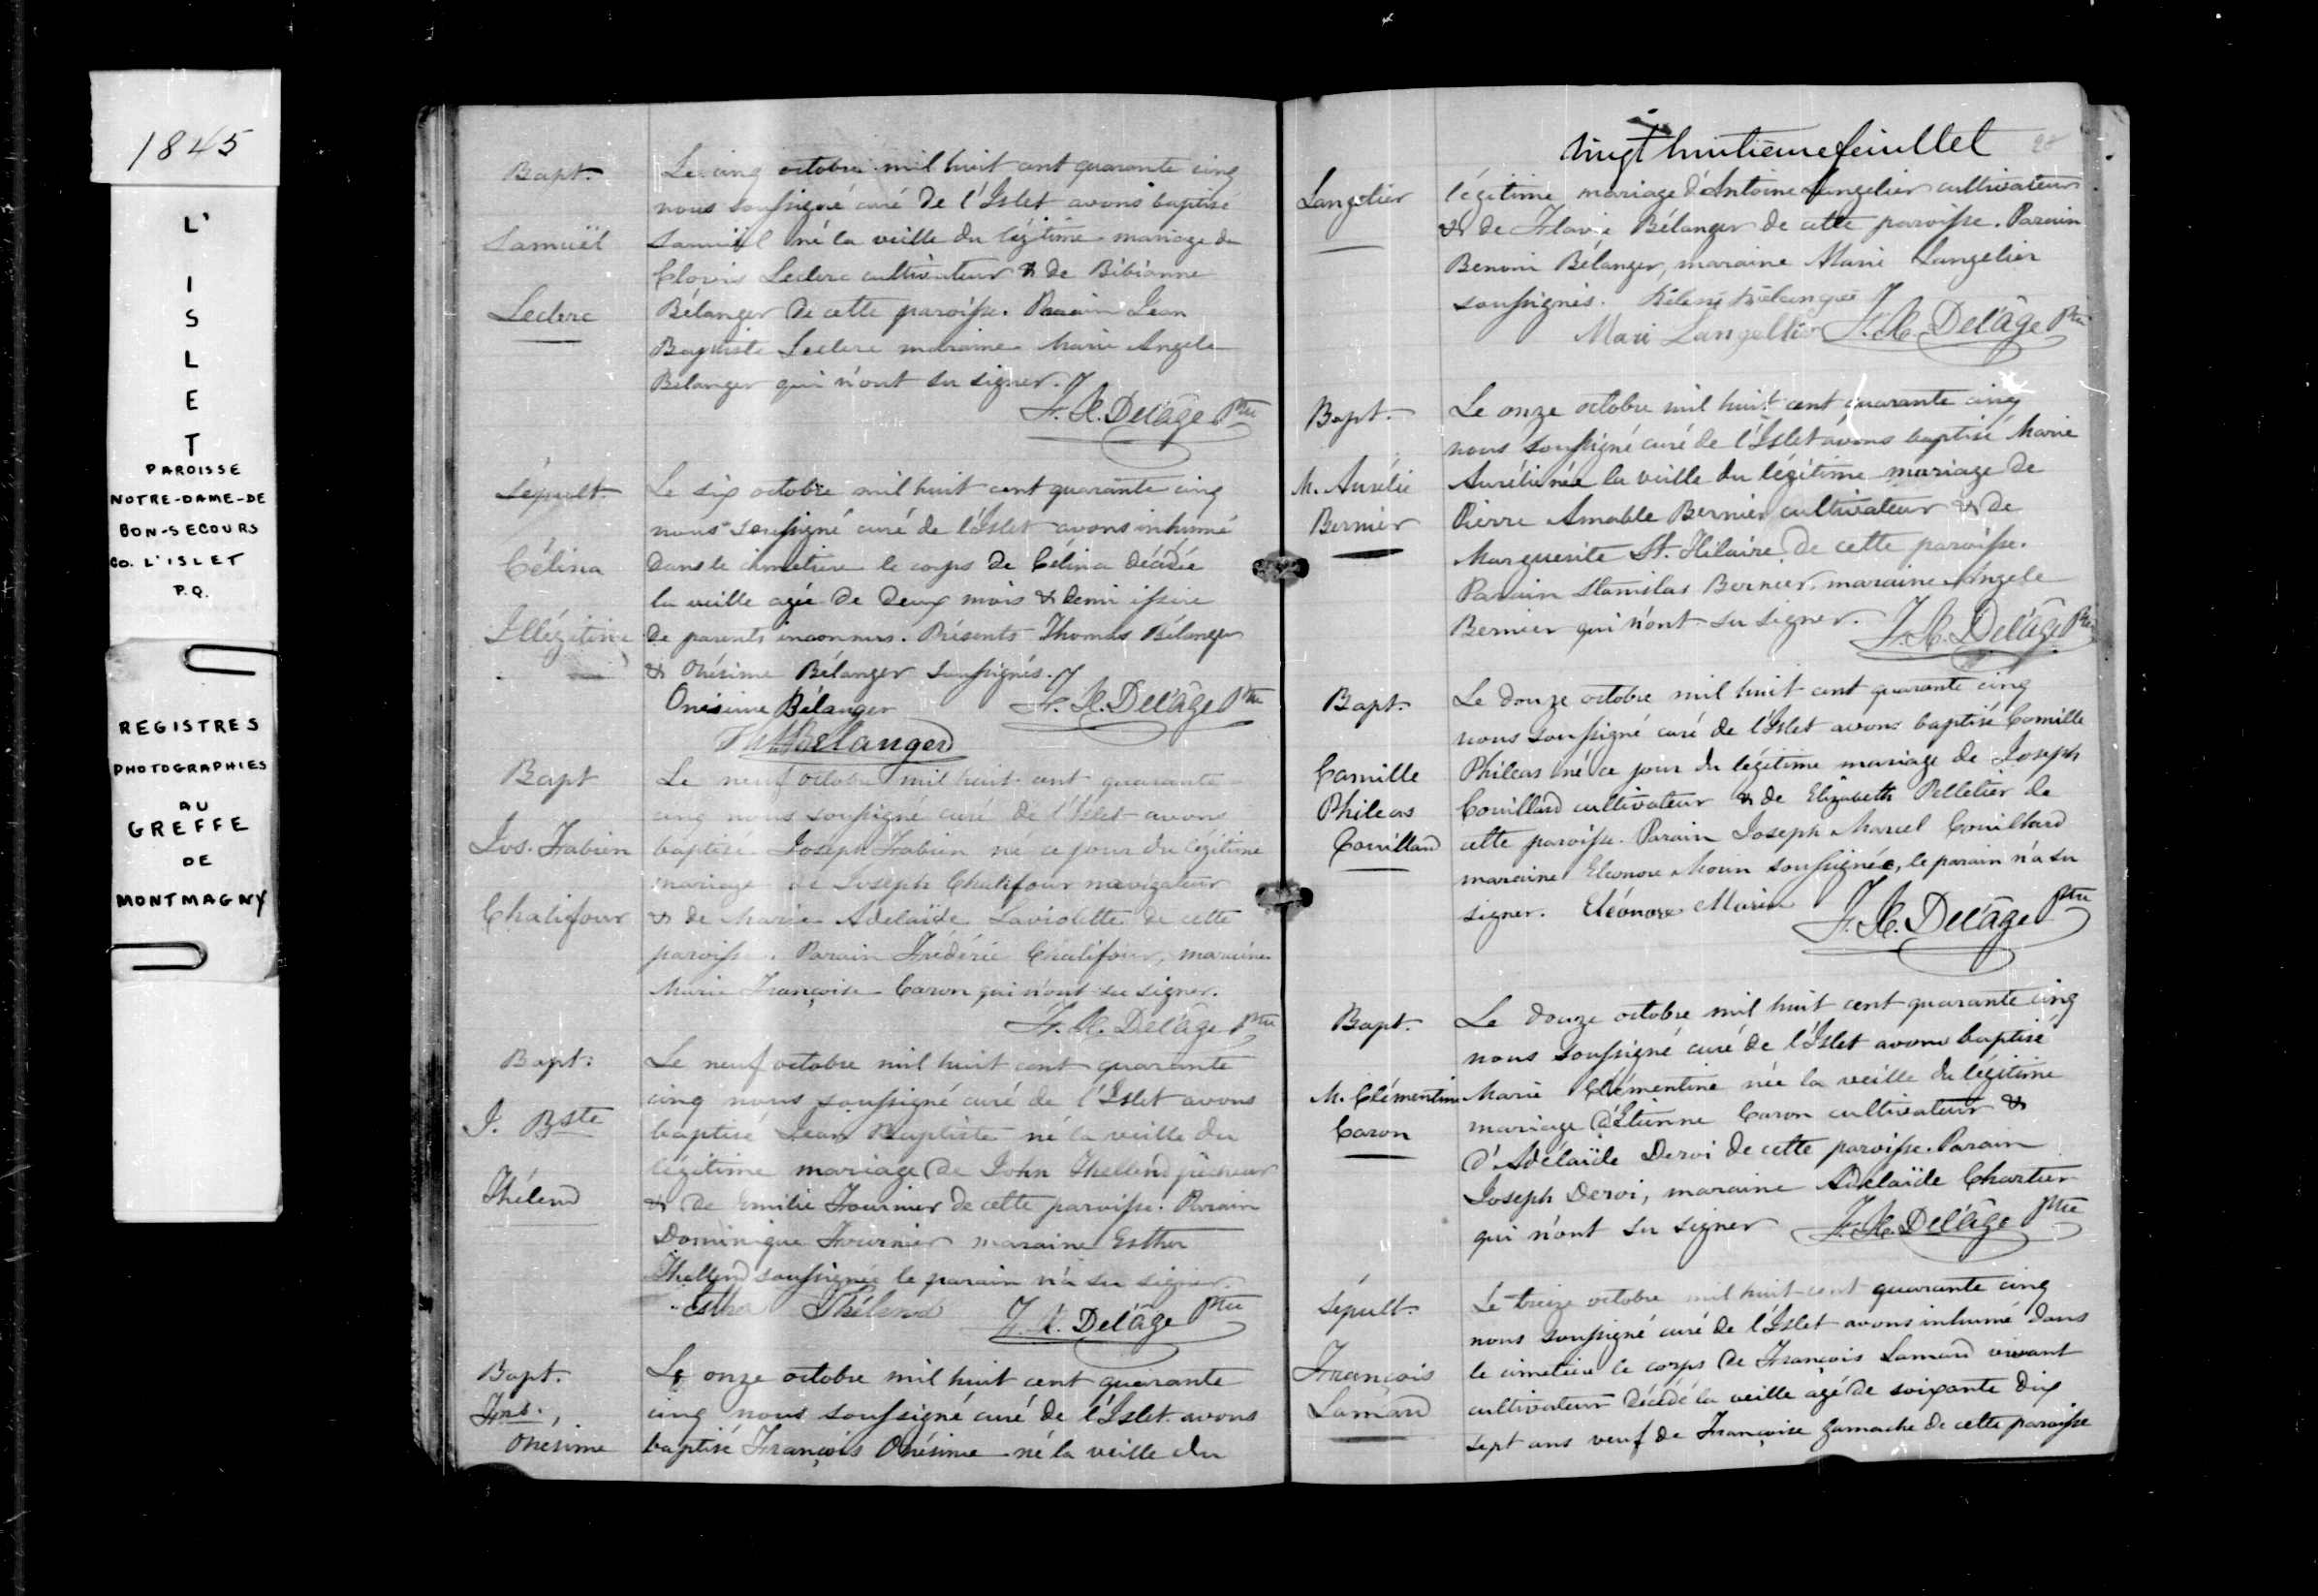 1845
L'
I
S
L
E
T
PAROISSE
NOTRE-DAME-DE
BON-SECOURS
CO. L'ISLET
P.Q.
REGISTRES
PHOTOGRAPHIES
AU
GREFFE
DE
MONTMAGNY
Bapt.
Samuël
Leclerc
Le cinq octobre mil huit cent quarante cinq
nous soussigné curé de l'Islet avons baptisé
Samuël né la veille du légitime mariage de
Clovis Leclerc cultivateur & de Bibianne
Bélanger de cette paroisse. Parain Jean
Baptiste Leclerc maraine Marie Angele
Bélanger qui n'ont su signer.
F. X. Delâge Ptre
Sépult.
Célina
Illégitime
Le six octobre mil huit cent quarante cinq
nous soussigné curé de l'Islet avons inhumé
dans le cimetiere le corps de Célina décédée
la veille agée de deux mois & demi issue
de parents inconnus. Présents Thomas Bélanger
& Onésime Bélanger soussignés.
Onésime Bélanger F. X. Delâge Ptre
Bélanger
Bapt
Jos. Fabien
Chalifour
Le neuf octobre mil huit cent quarante
cinq nous soussigné curé de l'Islet avons
baptisé Joseph Fabien né ce jour du légitime
mariage de Joseph Chalifour navigateur
& de Marie Adelaïde Laviolette de cette
paroisse. Parain Frédéric Chalifour, maraine
Marie Françoise Caron qui n'ont su signer.
F. X. Delâge Ptre
Bapt.
J. Bste
Thélend
Le neuf octobre mil huit cent quarante
cinq nous soussigné curé de l'Islet avons
baptisé Jean Baptiste né la veille du
légitime mariage de John Thellend pêcheur
& de Emilie Fournier de cette paroisse. Parain
Dominique Fournier maraine Esther
Thellend soussignée le parain n'a su signer.
Thélend F. X. Delâge Ptre
Bapt.
Frs.
Onésime
Le onze octobre mil huit cent quarante
cinq nous soussigné curé de l'Islet avons
baptisé François Onésime né la veille du
vingt huitième feuillet 28
Langelier
légitime mariage d'Antoine Langelier cultivateur
& de Flavie Bélanger de cette paroisse. Parain
Benoni Bélanger, maraine Marie Langelier
soussignés.
Mari Langellier F. X. Delâge Ptre
Bapt.
M. Aurélie
Bernier
Le onze octobre mil huit cent quarante cinq
nous soussigné curé de l'Islet avons baptisé Marie
Aurélie née la veille du légitime mariage de
Pierre Amable Bernier cultivateur & de
Marguerite St. Hilaire de cette paroisse.
Parain Stanislas Bernier, maraine Angele
Bernier qui n'ont su signer. F. X. Delâge Ptre
Bapt.
Camille
Phileas
Couillard
Le douze octobre mil huit cent quarante cinq
nous soussigné curé de l'Islet avons baptisé Camille
Phileas né ce jour du légitime mariage de Joseph
Couillard cultivateur & de Elizabeth Pelletier de
cette paroisse. Parain Joseph Marcel Couillard
maraine Eleonore Morin soussignée, le parain n'a su
signer. Eléonore Morin
F. X. Delâge Ptre
Bapt.
M. Clémentine
Caron
Le douze octobre mil huit cent quarante cinq
nous soussigné curé de l'Islet avons baptisé
Marie Clémentine née la veille du légitime
mariage d'Etienne Caron cultivateur &
d'Adélaïde Deroi de cette paroisse. Parain
Joseph Deroi, maraine Adélaïde Chartier
qui n'ont su signer F. X. Delâge Ptre
Sépult.
François
Lamard
Le treize octobre mil huit cent quarante cinq
nous soussigné curé de l'Islet avons inhumé dans
le cimetiere le corps de François Lamard vivant
cultivateur décédé la veille agé de soixante dix
sept ans veuf de Françoise Gamache de cette paroisse